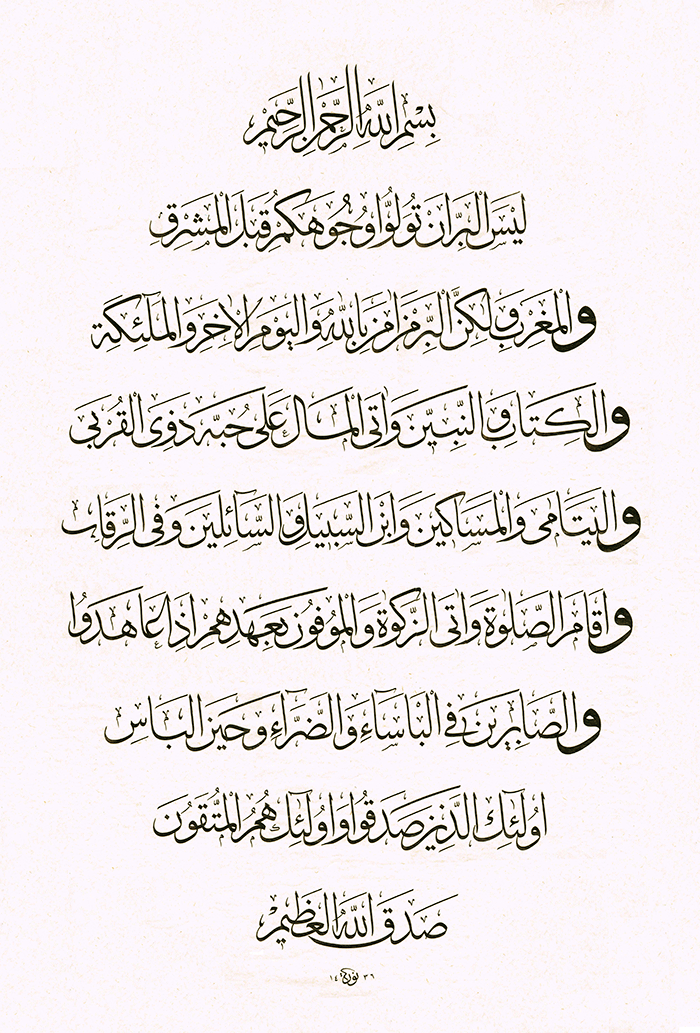 بِسْمِ اللّٰهِ الرَّحْمٰنِ الرَّحِيْمِ
لَيْسَ الْبِرَّ اَنْ تُوَلُّوا وُجُوهَكُمْ قِبَلَ الْمَشْرِقِ
وَالْمَغْرِبِ وَلٰكِنَّ الْبِرَّ مَنْ اٰمَنَ بِاللّٰهِ وَالْيَوْمِ الْاٰخِرِ وَالْمَلٰٓئِكَةِ
وَالْكِتَابِ وَالنَّبِيّٖنَ وَاٰتَى الْمَالَ عَلٰى حُبِّهٖ ذَوِى الْقُرْبٰى
وَالْيَتَامٰى وَالْمَسَاكٖينَ وَابْنَ السَّبٖيلِ وَالسَّٓائِلٖينَ وَفِى الرِّقَابِ
وَاَقَامَ الصَّلٰوةَ وَاٰتَى الزَّكٰوةَ وَالْمُوفُونَ بِعَهْدِهِمْ اِذَا عَاهَدُوا
وَالصَّابِرٖينَ فِى الْبَاْسَٓاءِ وَالضَّرَّٓاءِ وَحٖينَ الْبَاْسِ
اُولٰٓئِكَ الَّذٖينَ صَدَقُوا وَاُولٰٓئِكَ هُمُ الْمُتَّقُونَ
صَدَقَ اللّٰهُ الْعَظٖيمُ
١٤٣٦